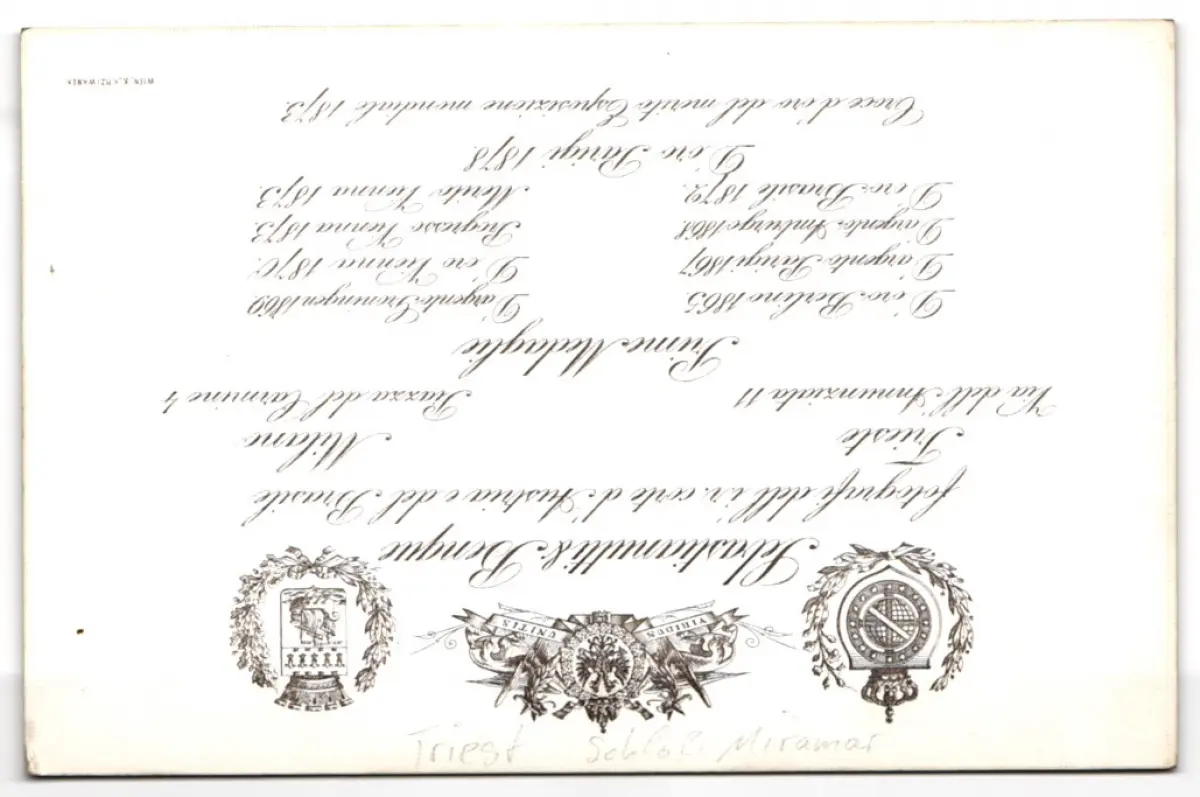 VIRIBUS UNITIS
Sebastianutti & Benque
fotografi dell' i. r. corte d'Austria e del Brasile
Trieste Milano
Via dell' Annunziata 11 Piazza del Carmine 4
Prime Medaglie
D'oro Berlino 1865. D'argento Groningen 1869.
D'argento Parigi 1867. D'oro Vienna 1870.
D'argento Amburgo 1868. Progresso Vienna 1873.
D'oro Brasile 1872. Merito Vienna 1873.
D'oro Parigi 1878.
Croce d'oro del merito Esposizione mondiale 1873.
WIEN, K. KRZIWANEK
Triest Schloß Miramar